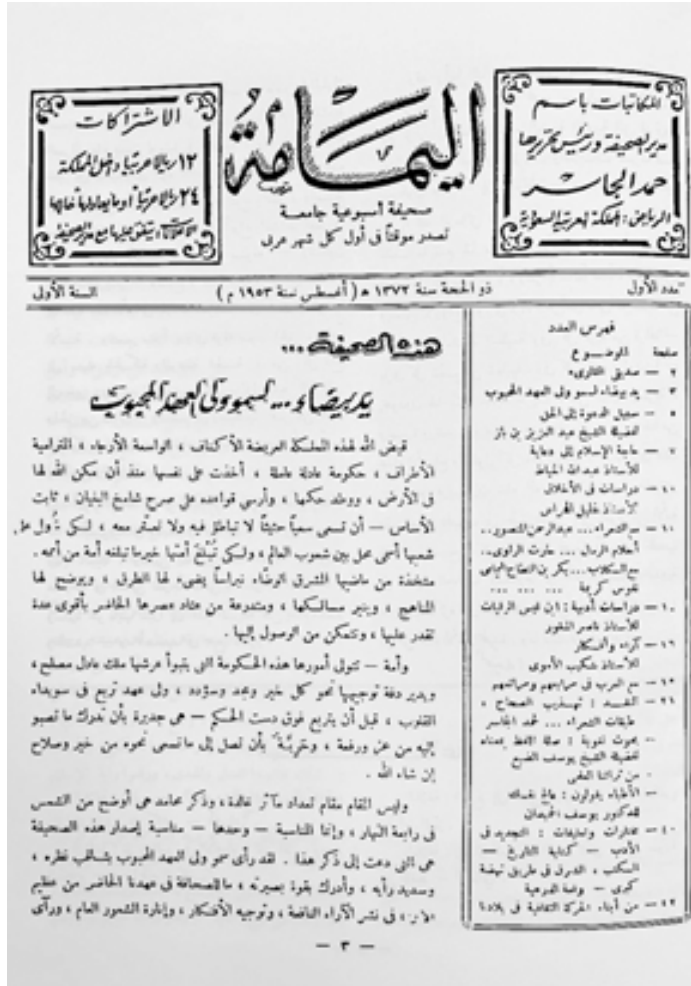 المكاتبات باسم
مدير الصحيفة ورئيس تحريرها
حمد الجاسر
الرياض : المملكة العربية السعودية
اليمامة
صحيفة أسبوعية جامعة
تصدر موقتاً فى أول كل شهر عربى
الاشتراكات
١٢ ريالا عربيا داخل المملكة
٢٤ ريالا عربياً أو ما يعادلها خارجها
الاعلانات يتفق عليها مع مدير الصحيفة
العدد الأول
ذو الحجة سنة ١٣٧٢ ھ ( أغسطس سنة ١٩٥٣ م )
السنة الأولى
فهرس العدد
صفحة الموضــوع
٢ — صديقى القارىء
٣ — يد بيضاء لسمو ولى العهد المحبوب
٥ — سبيل الدعوة إلى الحق
لفضيلة الشيخ عبد العزيز بن باز
٧ — حاجة الإسلام إلى دعاية
للأستاذ عبد الله الخياط
١٠ — دراسات فى الأخلاق
للأستاذ خليل الهراس
مع الشعراء... عبد الرحمن المنصور..
أحلام الرمل ... حارث الراوى..
نفوس كريمة ... ... ...
دراسات أدبية : ابن قيس الرقيات
للأستاذ ناصر المنقور
آراء وأفكار
للأستاذ شكيب الأموى
مع العرب فى
النقــد : تهذيب الصحاح ،
طبقات الشعراء ... لحمد الجاسر
— بحوث لغوية : صلة اللفظ بمعناه
لفضيلة الشيخ يوسف الضبع
من تراثنا الفنى
— الأطباء يقولون : عالج نفسك
للدكتور يوسف الحميدان
٤٠ — مختارات وتعليقات : التجديد فى
الأدب — كتابة التاريخ —
السكتب ، الشرق فى طريق نهضة
كبرى — وقعة الدرعية
٤٢ — من أنباء الحركة الثقافية فى بلادنا
هذه الصحيفة ...
يد بيضاء ... لسمو ولى العهد المحبوب
قيض الله لهذه المملكة العريضة الأكناف ، الواسعة الأرجاء ، المترامية
الأطراف ، حكومة عادلة عاملة ، أخذت على نفسها منذ أن مكن الله لها
فى الأرض ، ووطد حكمها ، وأرسى قواعده على صرح شامخ البنيان ، ثابت
الأساس — أن تسعى سعياً حثيثاً لا تباطؤ فيه ولا تعثر معه ، لسكى تُحِل
شعبها أسمى محل بين شعوب العالم ، ولسكى تُبَلغ أمتها خير ما تبلغه أمة من أمم .
متخذة من ماضيها المشرق الوضاء نبراساً يضىء لها الطرق ، ويوضح لها
المناهج ، وينير مسالكها ، ومتدرعة من عتاد عصرها الحاضر بأقوى عدة
تقدر عليها ، وتتمكن من الوصول إليها .
وأمة — تتولى أمورها هذه الحكومة التى يتبوأ عرشها ملك عادل مصلح ،
ويدير دفة توجيهها نحو كل خير ومجد وسؤدد ، ولى عهد تربع فى سويداء
القلوب ، قبل أن يتربع فوق دست الحكم — هى جديرة بأن تدرك ما تصبو
إليه من عز ورفعة ، وحَرِيَّة بأن تصل إلى ما تسعى نحوه من خير وصلاح
إن شاء الله .
وليس المقام مقام تعداد مآثر خالدة ، وذكر محامد هى أوضح من الشمس
فى رابعة النهار ، وإنما المناسبة — وحدها — مناسبة إصدار هذه الصحيفة
هى التى دعت إلى ذكر هذا . لقد رأى سمو ولى العهد المحبوب بثاقب نظره ،
وسديد رأيه ، وأدرك بقوة بصيرته ، ما للصحافة فى عهدنا الحاضر من عظيم
الأثر فى نشر الآراء النافعة ، وتوجيه الأفكار ، وإنارة الشعور العام ، ورأى
— ٣ —